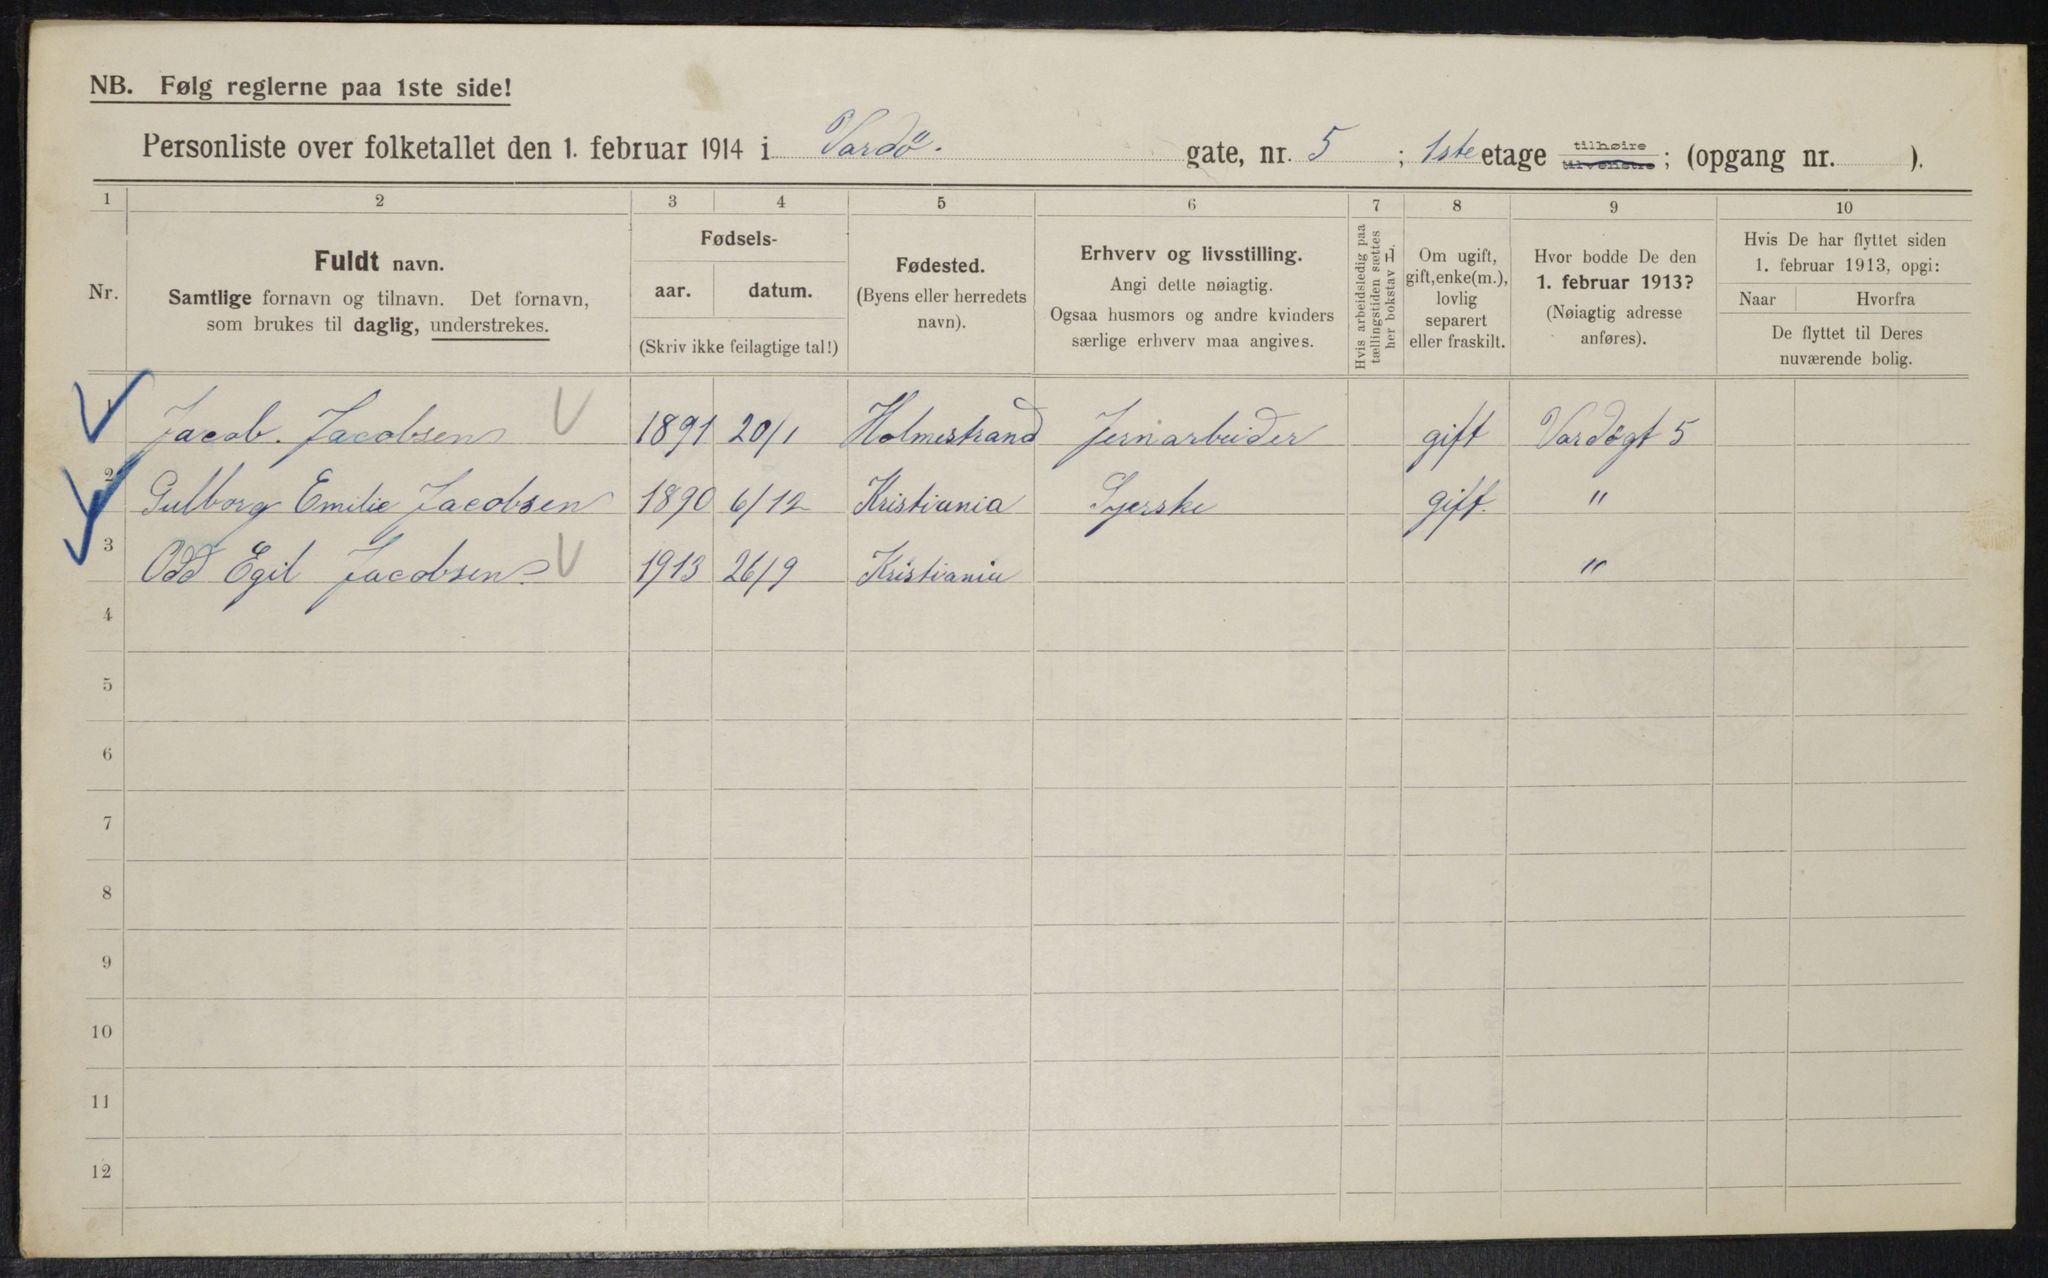 NB. Følg reglerne paa 1ste side!
Personliste over folketallet den 1. februar 1914 i Vardø. gate, nr. 5 ; 1ste etage tilhøire tilvenstre ; (opgang nr. ).
1 2 3 4 5 6 7 8 9 10
Nr.
Fuldt navn.
Samtlige fornavn og tilnavn. Det fornavn,
som brukes til daglig, understrekes.
Fødsels-
aar. datum.
(Skriv ikke feilagtige tal!)
Fødested.
(Byens eller herredets
navn).
Erhverv og livsstilling.
Angi dette nøiagtig.
Ogsaa husmors og andre kvinders
særlige erhverv maa angives.
Hvis arbeidsledig paa
tællingstiden sættes
her bokstav L.
Om ugift,
gift, enke(m.),
lovlig
separert
eller fraskilt.
Hvor bodde De den
1. februar 1913?
(Nøiagtig adresse
anføres).
Hvis De har flyttet siden
1. februar 1913, opgi:
Naar Hvorfra
De flyttet til Deres
nuværende bolig.
1 Jacob. Jacobsen 1891 20/1 Holmestrand Jernarbeider gift Vardøgt 5
2 Gulborg Emilie Jacobsen 1890 6/12 Kristiania Syerske gift. "
3 Odd Egil Jacobsen. 1913 26/9 Kristiania "
4
5
6
7
8
9
10
11
12